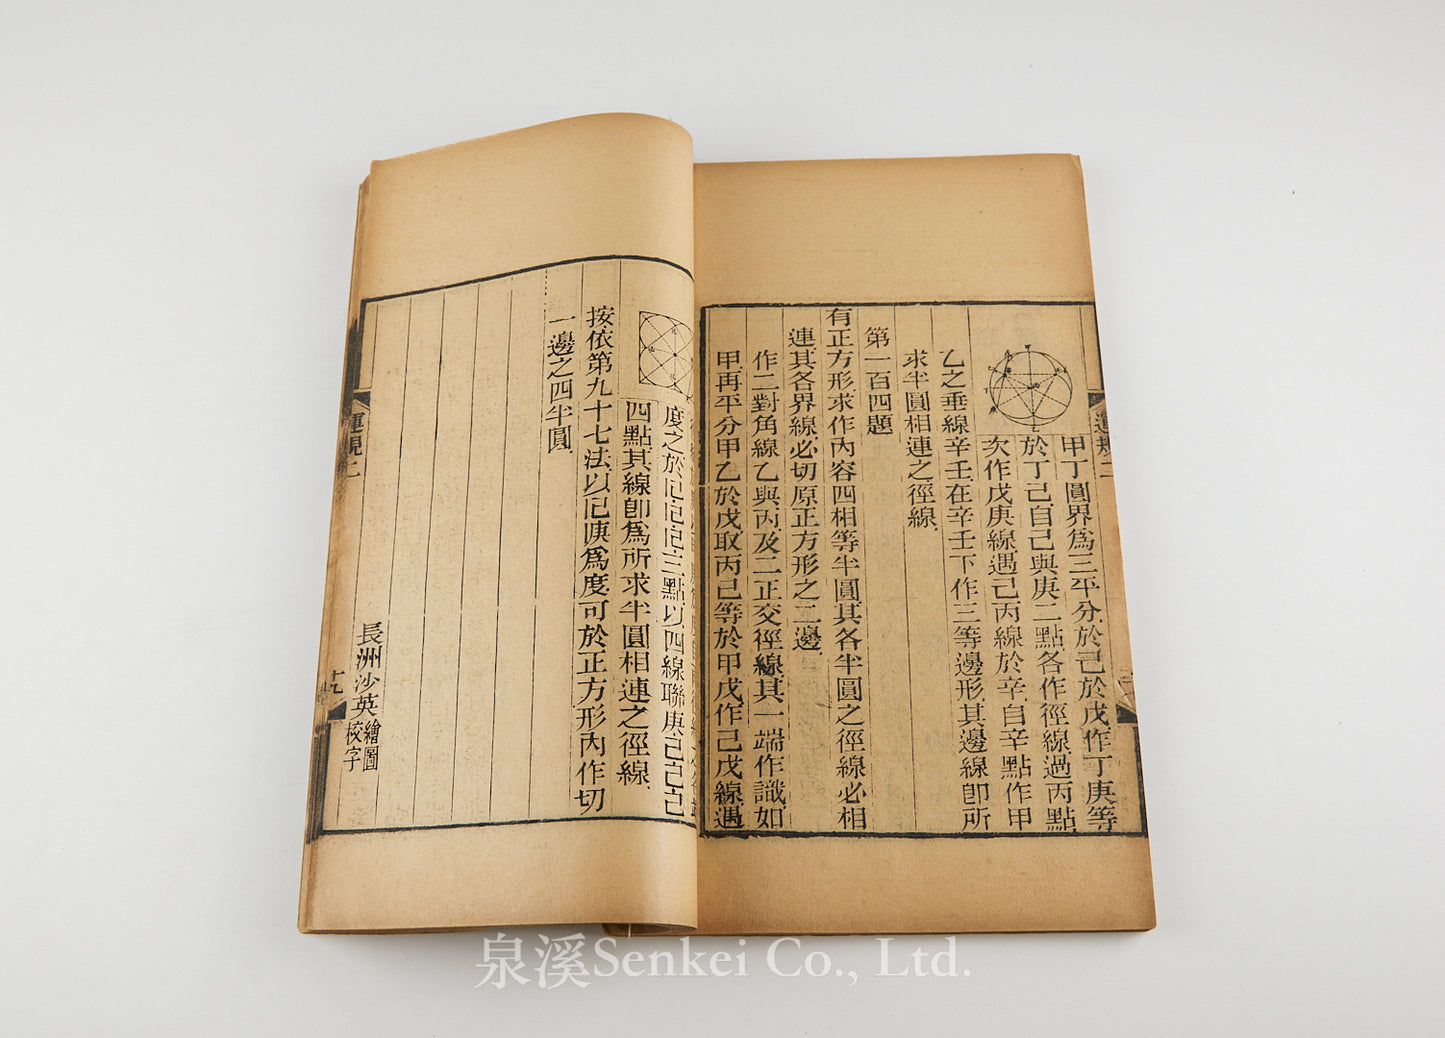 甲丁圓界爲三平分於己於戊作丁庚等
於丁己自己與庚二點各作徑線過丙點
次作戊庚線遇己丙線於辛自辛點作甲
乙之垂線辛壬在辛壬下作三等邊形其邊線卽所
求半圓相連之徑線
第一百四題
有正方形求作內容四相等半圓其各半圓之徑線必相
連其各界線必切原正方形之二邊
作二對角線乙與丙及二正交徑線其一端作識如
甲再平分甲乙於戊取丙己等於甲戊作己戊線遇
運規二
度之於己己己三點以四線聯庚己己己
四點其線卽爲所求半圓相連之徑線
按依第九十七法以己庚爲度可於正方形內作切
一邊之四半圓
長洲沙英繪圖
校字
運規二
十九
泉溪Senkei Co., Ltd.